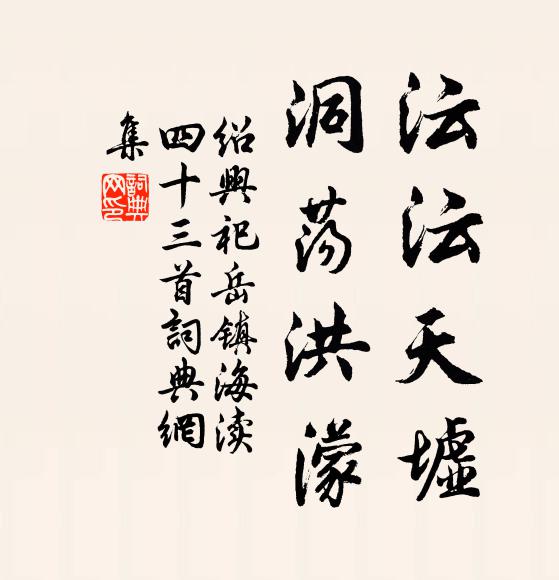 沄沄天墟
洞荡洪濛
绍興祀岳镇海渎
四十三首詞典網
集
詞典
网印